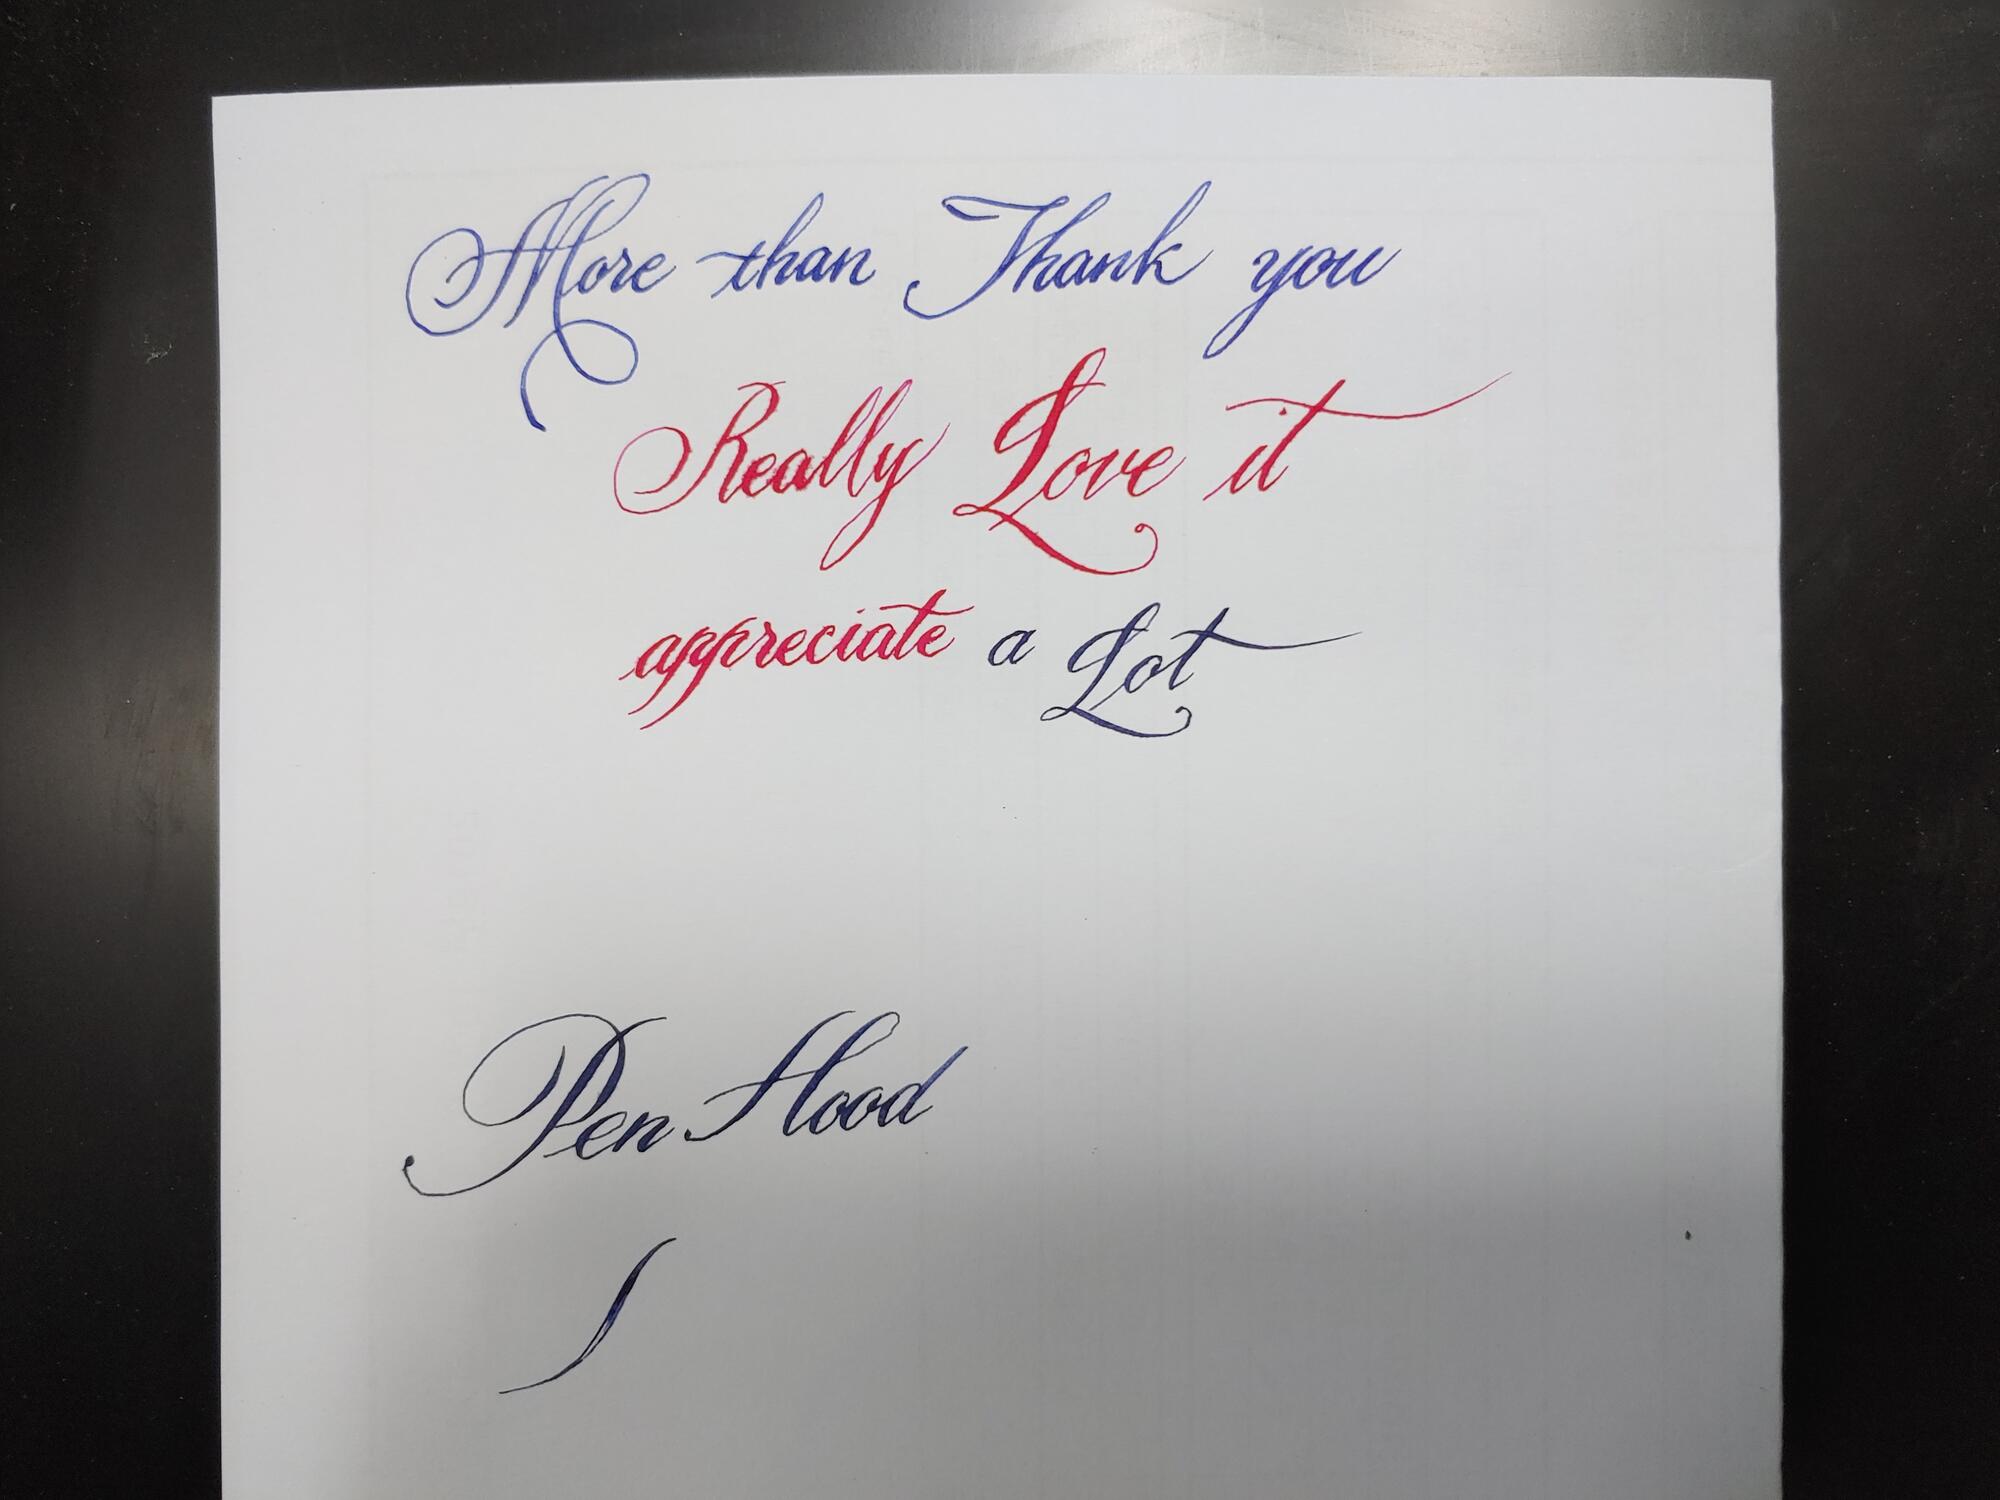 More than Thank you
Really Love it
appreciate a Lot
Pen Hood